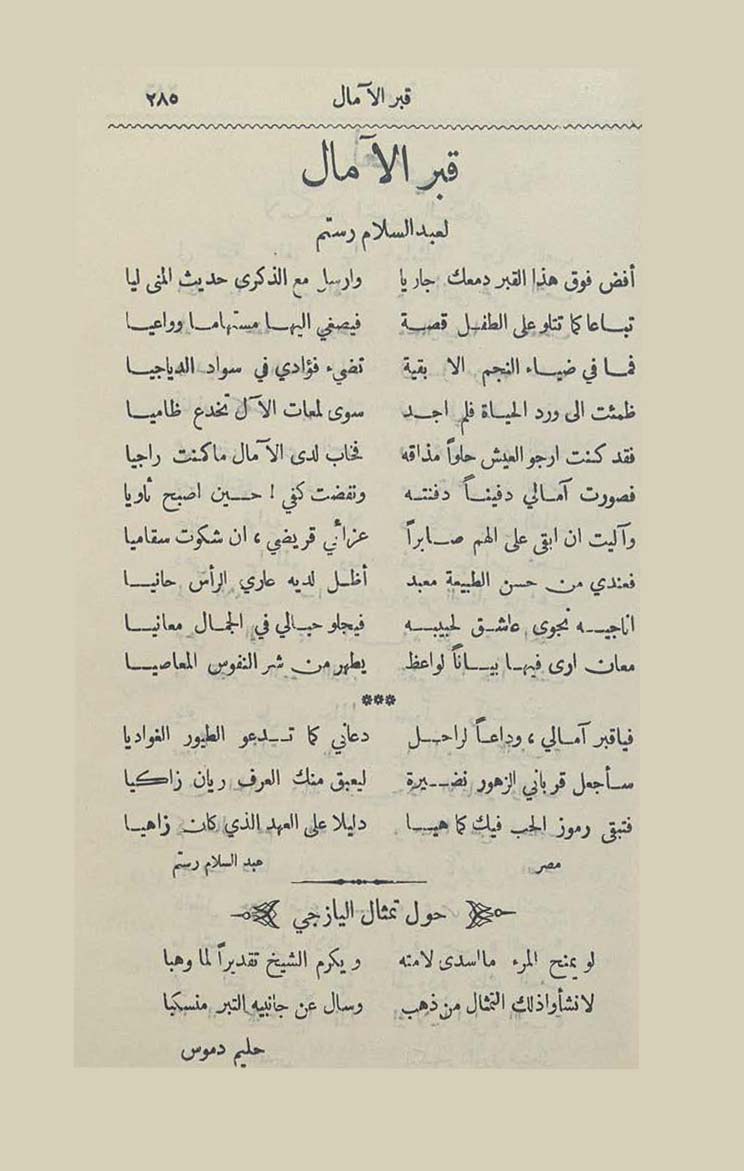 قبر الآمال ٢٨٥
قبر الآمال
لعبدالسلام رستم
أفض فوق هذا القبر دمعك جاريا وارسل مع الذكرى حديث المنى ليا
تباعا كما تتلو على الطفل قصة فيصغي اليها مستهاما وواعيا
فما في ضياء النجم الا بقية تضيء فؤادي في سواد الدياجيا
ظمئت الى ورد الحياة فلم اجد سوى لمعات الآل تخدع ظاميا
فقد كنت ارجو العيش حلواً مذاقه فخاب لدى الآمال ماكنت راجيا
فصورت آمالي دفيناً دفنته ونفضت كفي ! حين اصبح ثاويا
وآليت ان ابقى على الهم صابراً عزائي قريضي ، ان شكوت سقاميا
فعندي من حسن الطبيعة معبد أظل لديه عاري الرأس حانيا
اناجيه نجوى عاشق لحبيبه فيجلو حيالي في الجمال معانيا
معان ارى فيها بياناً لواعظ يطهر من شر النفوس المعاصيا
***
فياقبر آمالي ، وداعاً لراحل دعاني كما تدعو الطيور الغواديا
سأجعل قرباني الزهور نضيرة ليعبق منك العرف ريان زاكيا
فتبقى رموز الحب فيك كما هيا دليلا على العهد الذي كان زاهيا
مصر عبد السلام رستم
حول تمثال اليازجي
لو يمنح المرء مااسدى لامته ويكرم الشيخ تقديراً لما وهبا
لانشأواذلك التمثال من ذهب وسال عن جانبيه التبر منسكبا
حليم دموس